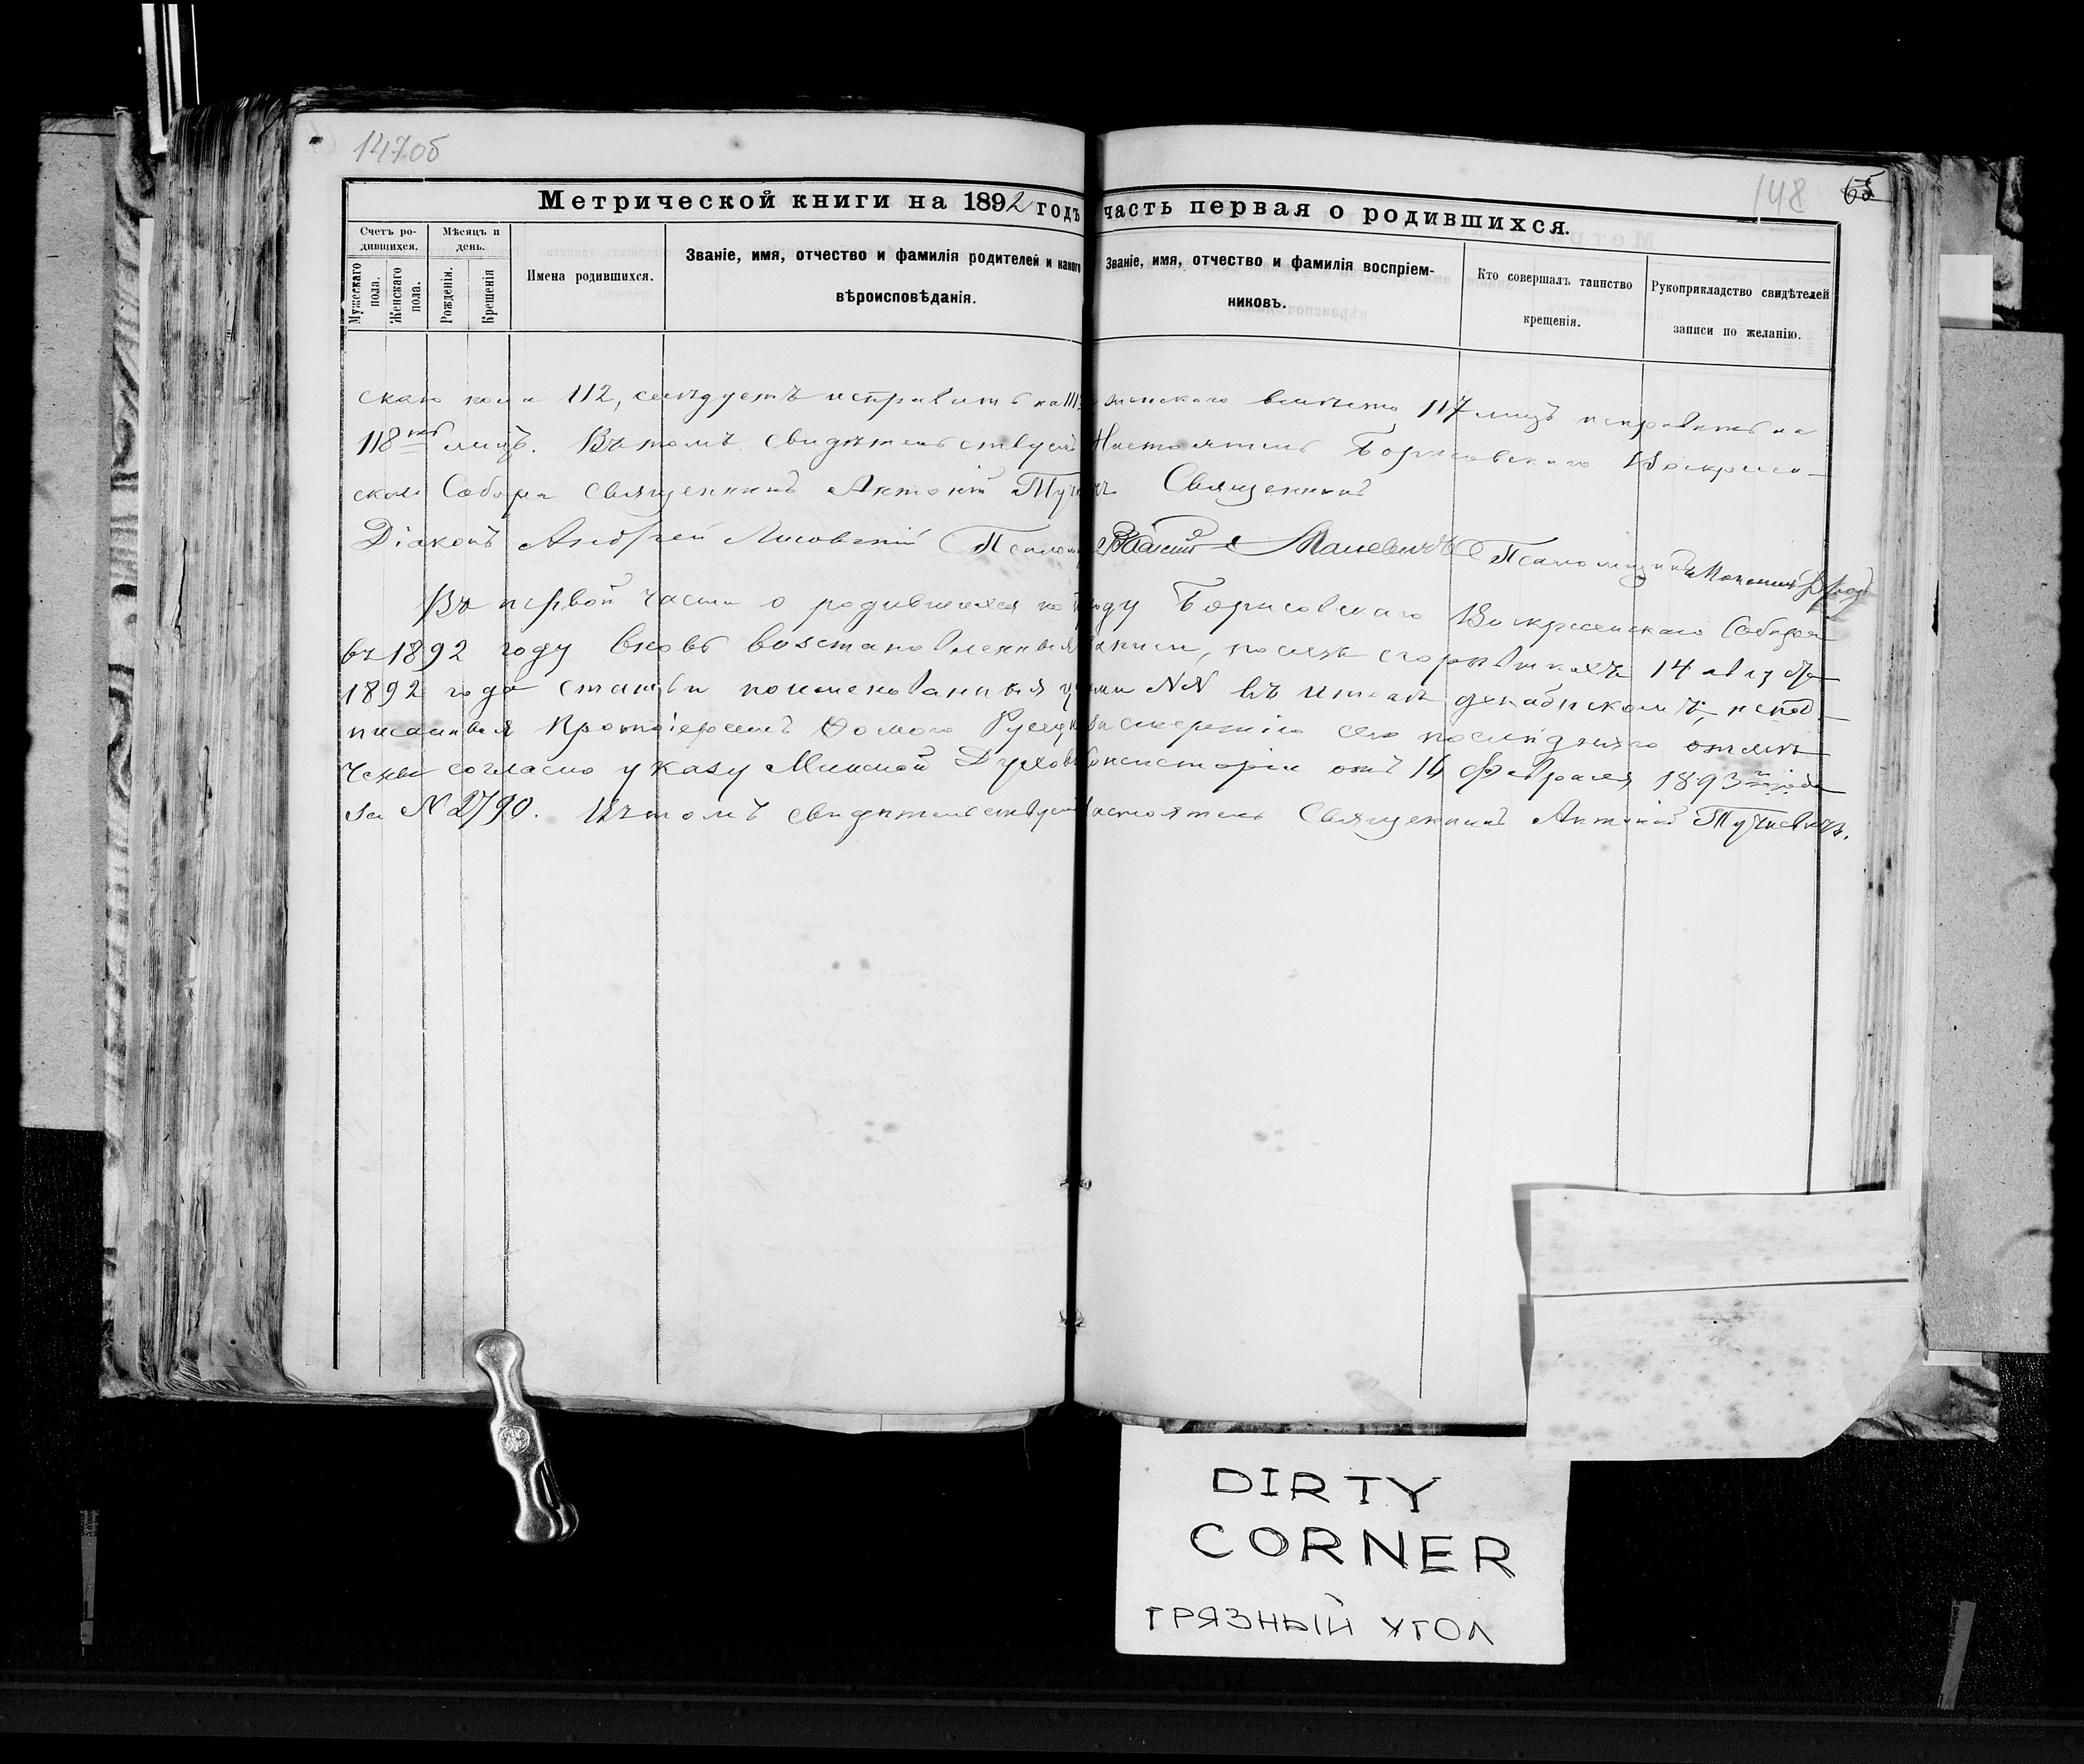 147об
148 65
Метрической книги на 1892 годъ часть первая о родившихся.
Счетъ родившихся.
Мужескаго пола.
Женскаго пола.
Мѣсяцъ и день.
Рожденія.
Крещенія
Имена родившихся.
Званіе, имя, отчество и фамилія родителей и какого
вѣроисповѣданія.
Званіе, имя, отчество и фамилія воспріем-
никовъ.
Кто совершалъ таинство
крещенія.
Рукоприкладство свидѣтелей
записи по желанію.
скаго пола 112, слѣдуетъ исправить на женскаго вмѣсто 117 лицъ исправить на
118 лицъ. Въ томъ свидѣтельствуемъ Настоятель Борисовскаго Воскресен-
скаго Собора Священникъ Антоній Священникъ
Діаконъ Андрей Лисовскій Маневичъ Псаломщикъ
Въ первой части о родившихся по году Борисовскаго Воскресенскаго Собора
въ 1892 году вновь возстановленныя записи, послѣ сгорѣвшихъ 14 августа
1892 года статьи поименованныя NN въ итогѣ декабрьскомъ, непод-
писанныя Протоіереемъ за смертію сего послѣдняго отмѣ-
чены согласно указу Минской Духовной Консисторіи отъ 16 февраля 1893 года
за N 2790. Въ томъ свидѣтельствуетъ Настоятель Священникъ Антоній Тучкевичъ.
DIRTY
CORNER
ГРЯЗНЫЙ УГОЛ